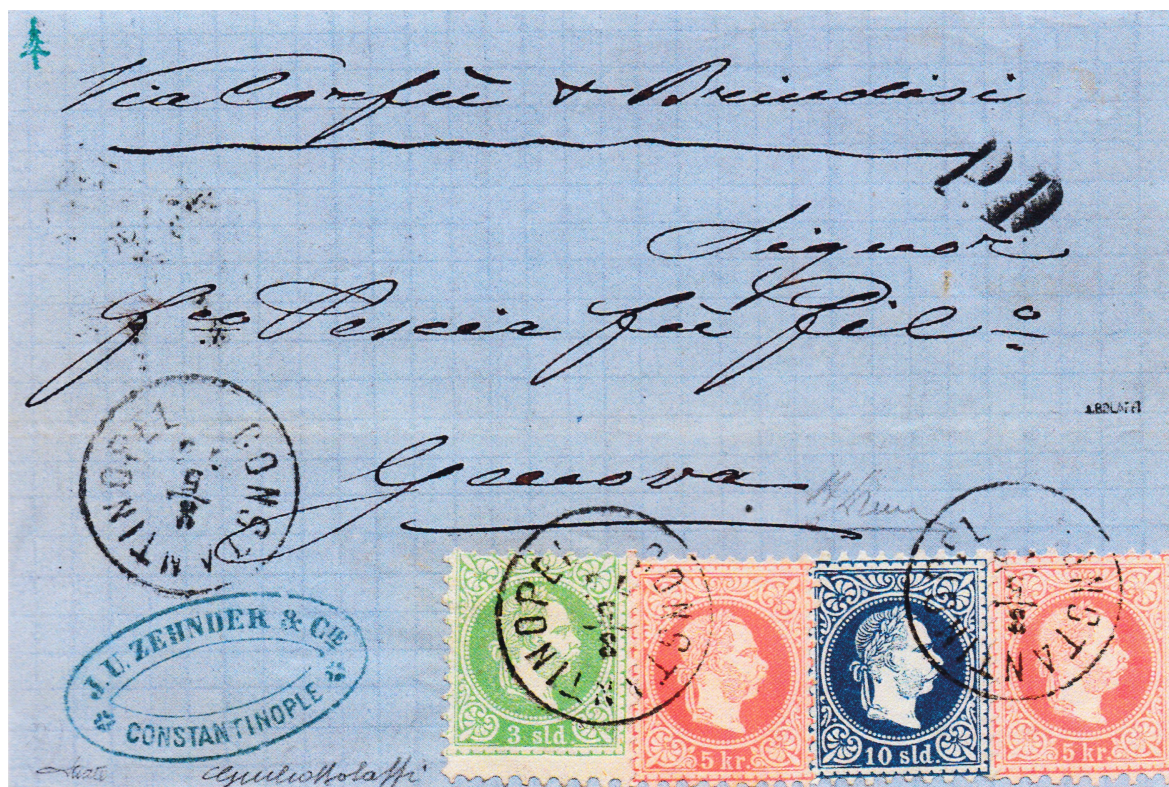 Via Corfù & Brindisi
P.D.
Signor
fco Pescia fù Fil.o
A.BOLAFFI
Genova
CONSTANTINOPEL
CONSTANTINOPEL
CONSTANTINOPEL
J. U. ZEHNDER & CIE
CONSTANTINOPLE
3 sld.
5 kr.
10 sld.
5 kr.
Giulio Bolaffi